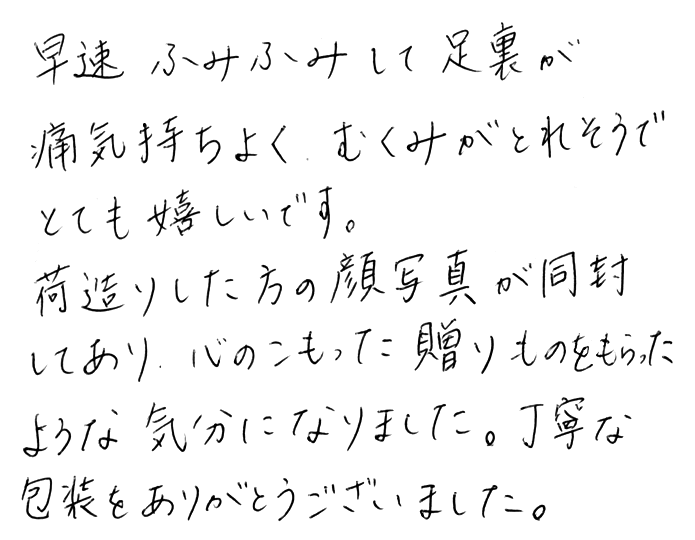 早速 ふみふみして足裏が
痛気持ちよく、むくみがとれそうで
とても嬉しいです。
荷造りした方の顔写真が同封
してあり、心のこもった贈りものをもらった
ような気分になりました。丁寧な
包装をありがとうございました。